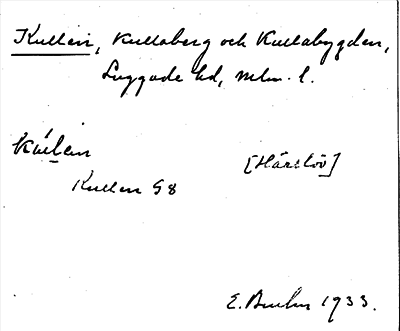 Kullen, Kullaberg och Kullabygden,
Luggude hd, mlm. l.
kúlen [Härslöv]
Kullen S8
E. 1933.